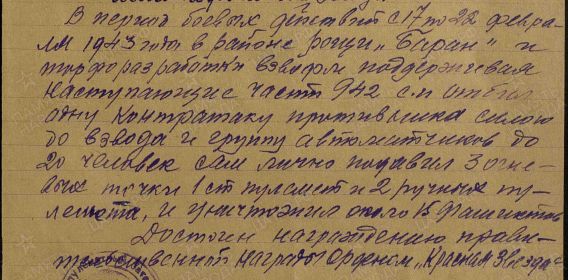 В период боевых действий с 17 по 22 февра-
ля 1943 года в районе рощи „Баран" и
торфоразработки взводом поддерживая
наступающие части 942 с.п отбил
одну контратаку противника силою
до взвода и группу автоматчиков до
20 человек сам лично подавил 3 огне-
вых точки 1 ст пулемет и 2 ручных пу-
лемета, и уничтожил около 15 фашистов
Достоин награждению прави-
тельственной наградой Орденом „Красная Звезда"